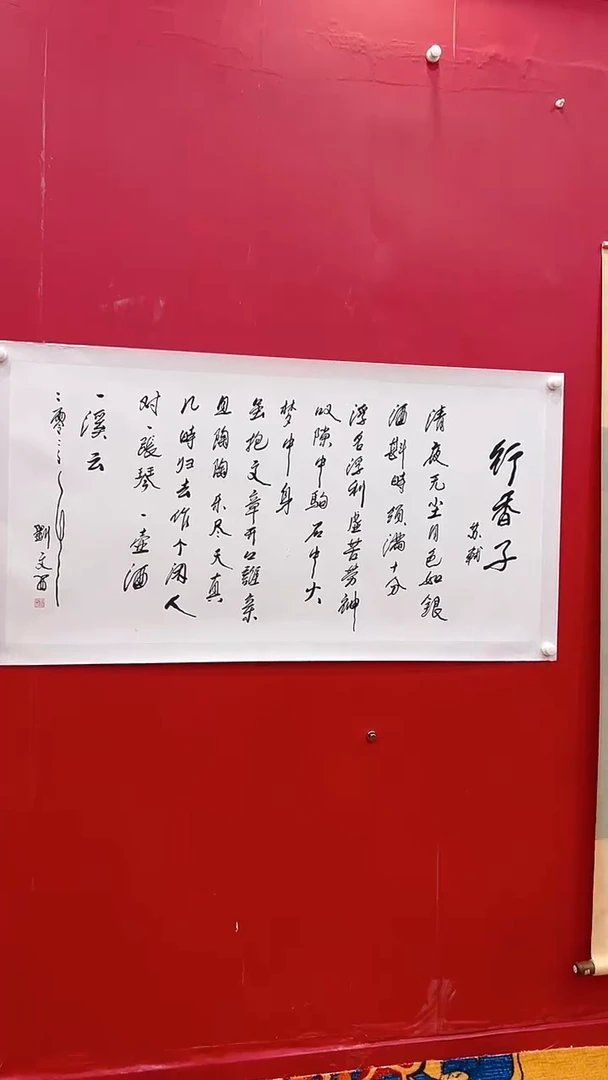 行香子
苏軾
清夜无尘月色如銀
酒斟時須满十分
浮名浮利虚苦劳神
叹隙中駒石中火
梦中身
虽抱文章开口誰亲
且陶陶乐尽天真
几時归去作个闲人
对一張琴一壶酒
一溪云
二零二
劉文